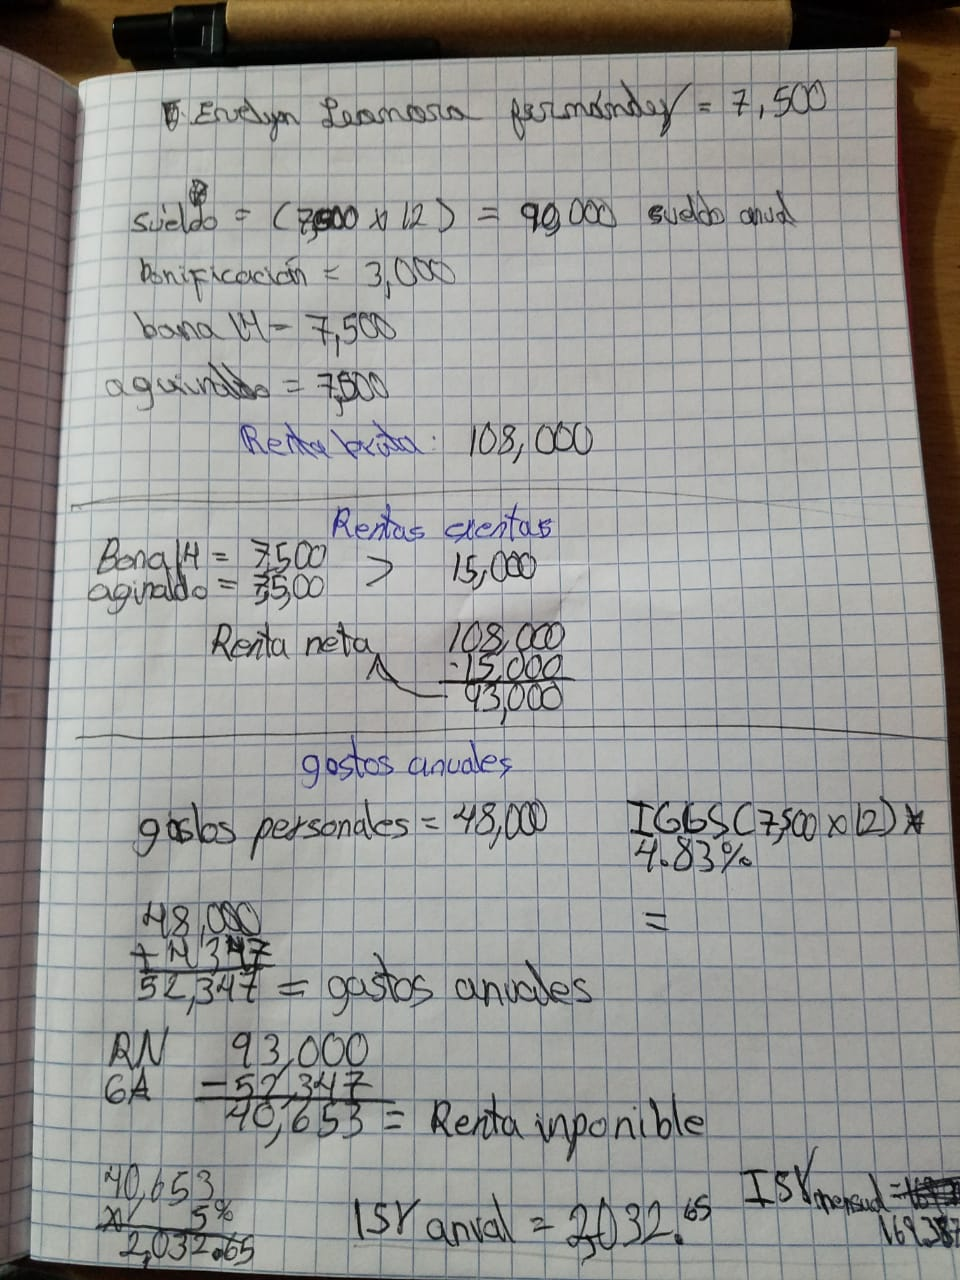 Evelyn Leonora fernández = 7,500
sueldo = (7,500 x 12) = 90,000 sueldo anual
bonificación = 3,000
bono 14 = 7,500
aguinaldo = 7,500
Renta bruta: 108,000
Rentas exentas
Bono 14 = 7,500 > 15,000
aginado = 7,500
Renta neta 108,000
-15,000
93,000
gastos anuales
gastos personales = 48,000 IGGS (7,500 x 12) *
4.83%
=
48,000
+ 4,347
52,347 = gastos anuales
RN 93,000
GA - 52,347
40,653 = Renta inponible
40,653
x 5%
2,032.65
ISR anual = 2,032.65
ISR mensual =
169.387